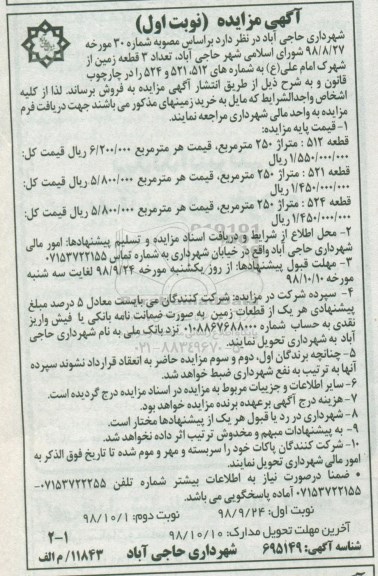 آگهی مزایده (نوبت اول)
شهرداری حاجی آباد در نظر دارد براساس مصوبه شماره ۳۰ مورخه
۹۸/۸/۲۷ شورای اسلامی شهر حاجی آباد، تعداد ۳ قطعه زمین از
شهرک امام علی(ع) به شماره های ۵۱۲، ۵۲۱ و ۵۲۴ را در چارچوب
قانون و به شرح ذیل از طریق انتشار آگهی مزایده به فروش برساند. لذا از کلیه
اشخاص واجدالشرایط که مایل به خرید زمینهای مذکور می باشند جهت دریافت فرم
مزایده به واحد مالی شهرداری مراجعه نمایند.
۱- قیمت پایه مزایده:
قطعه ۵۱۲ : متراژ ۲۵۰ مترمربع، قیمت هر مترمربع ۶/۲۰۰/۰۰۰ ریال قیمت کل:
۱/۵۵۰/۰۰۰/۰۰۰ ریال
قطعه ۵۲۱ : متراژ ۲۵۰ مترمربع، قیمت هر مترمربع ۵/۸۰۰/۰۰۰ ریال قیمت کل:
۱/۴۵۰/۰۰۰/۰۰۰ ریال
قطعه ۵۲۴ : متراژ ۲۵۰ مترمربع، قیمت هر مترمربع ۵/۸۰۰/۰۰۰ ریال قیمت کل:
۱/۴۵۰/۰۰۰/۰۰۰ ریال
۲- محل اطلاع از شرایط و دریافت اسناد مزایده و تسلیم پیشنهادها: امور مالی
شهرداری حاجی آباد واقع در خیابان شهرداری به شماره تماس ۰۷۱۵۳۷۲۲۱۵۵
۳- مهلت قبول پیشنهادها: از روز یکشنبه مورخه ۹۸/۹/۲۴ لغایت سه شنبه
مورخه ۹۸/۱۰/۱۰
۴- سپرده شرکت در مزایده: شرکت کنندگان می بایست معادل ۵ درصد مبلغ
پیشنهادی هر یک از قطعات زمین به صورت ضمانت نامه بانکی یا فیش واریز
نقدی به حساب شماره ۰۱۰۸۸۶۷۶۸۸۰۰۰ نزد بانک ملی به نام شهرداری حاجی
آباد به شهرداری تحویل نمایند.
۵- چنانچه برندگان اول، دوم و سوم مزایده حاضر به انعقاد قرارداد نشوند سپرده
آنها به ترتیب به نفع شهرداری ضبط خواهد شد.
۶- سایر اطلاعات و جزییات مربوط به مزایده در اسناد مزایده درج گردیده است.
۷- هزینه درج آگهی برعهده برنده مزایده خواهد بود.
۸- شهرداری در رد یا قبول هر یک از پیشنهادها مختار است.
۹- به پیشنهادات مبهم و مخدوش ترتیب اثر داده نخواهد شد.
۱۰- شرکت کنندگان پاکات خود را سربسته و مهر و موم شده تا تاریخ فوق الذکر به
امور مالی شهرداری تحویل نمایند.
• ضمنا درصورت نیاز به اطلاعات بیشتر شماره تلفن ۰۷۱۵۳۷۲۲۲۵۵-
۰۷۱۵۳۷۲۲۱۵۵ آماده پاسخگویی می باشد.
نوبت اول: ۹۸/۹/۲۴ نوبت دوم: ۹۸/۱۰/۱
آخرین مهلت تحویل مدارک: ۹۸/۱۰/۱۰ ۲-۱
شناسه آگهی: ۶۹۵۱۴۹ شهرداری حاجی آباد ۱۱۸۴۳/م الف